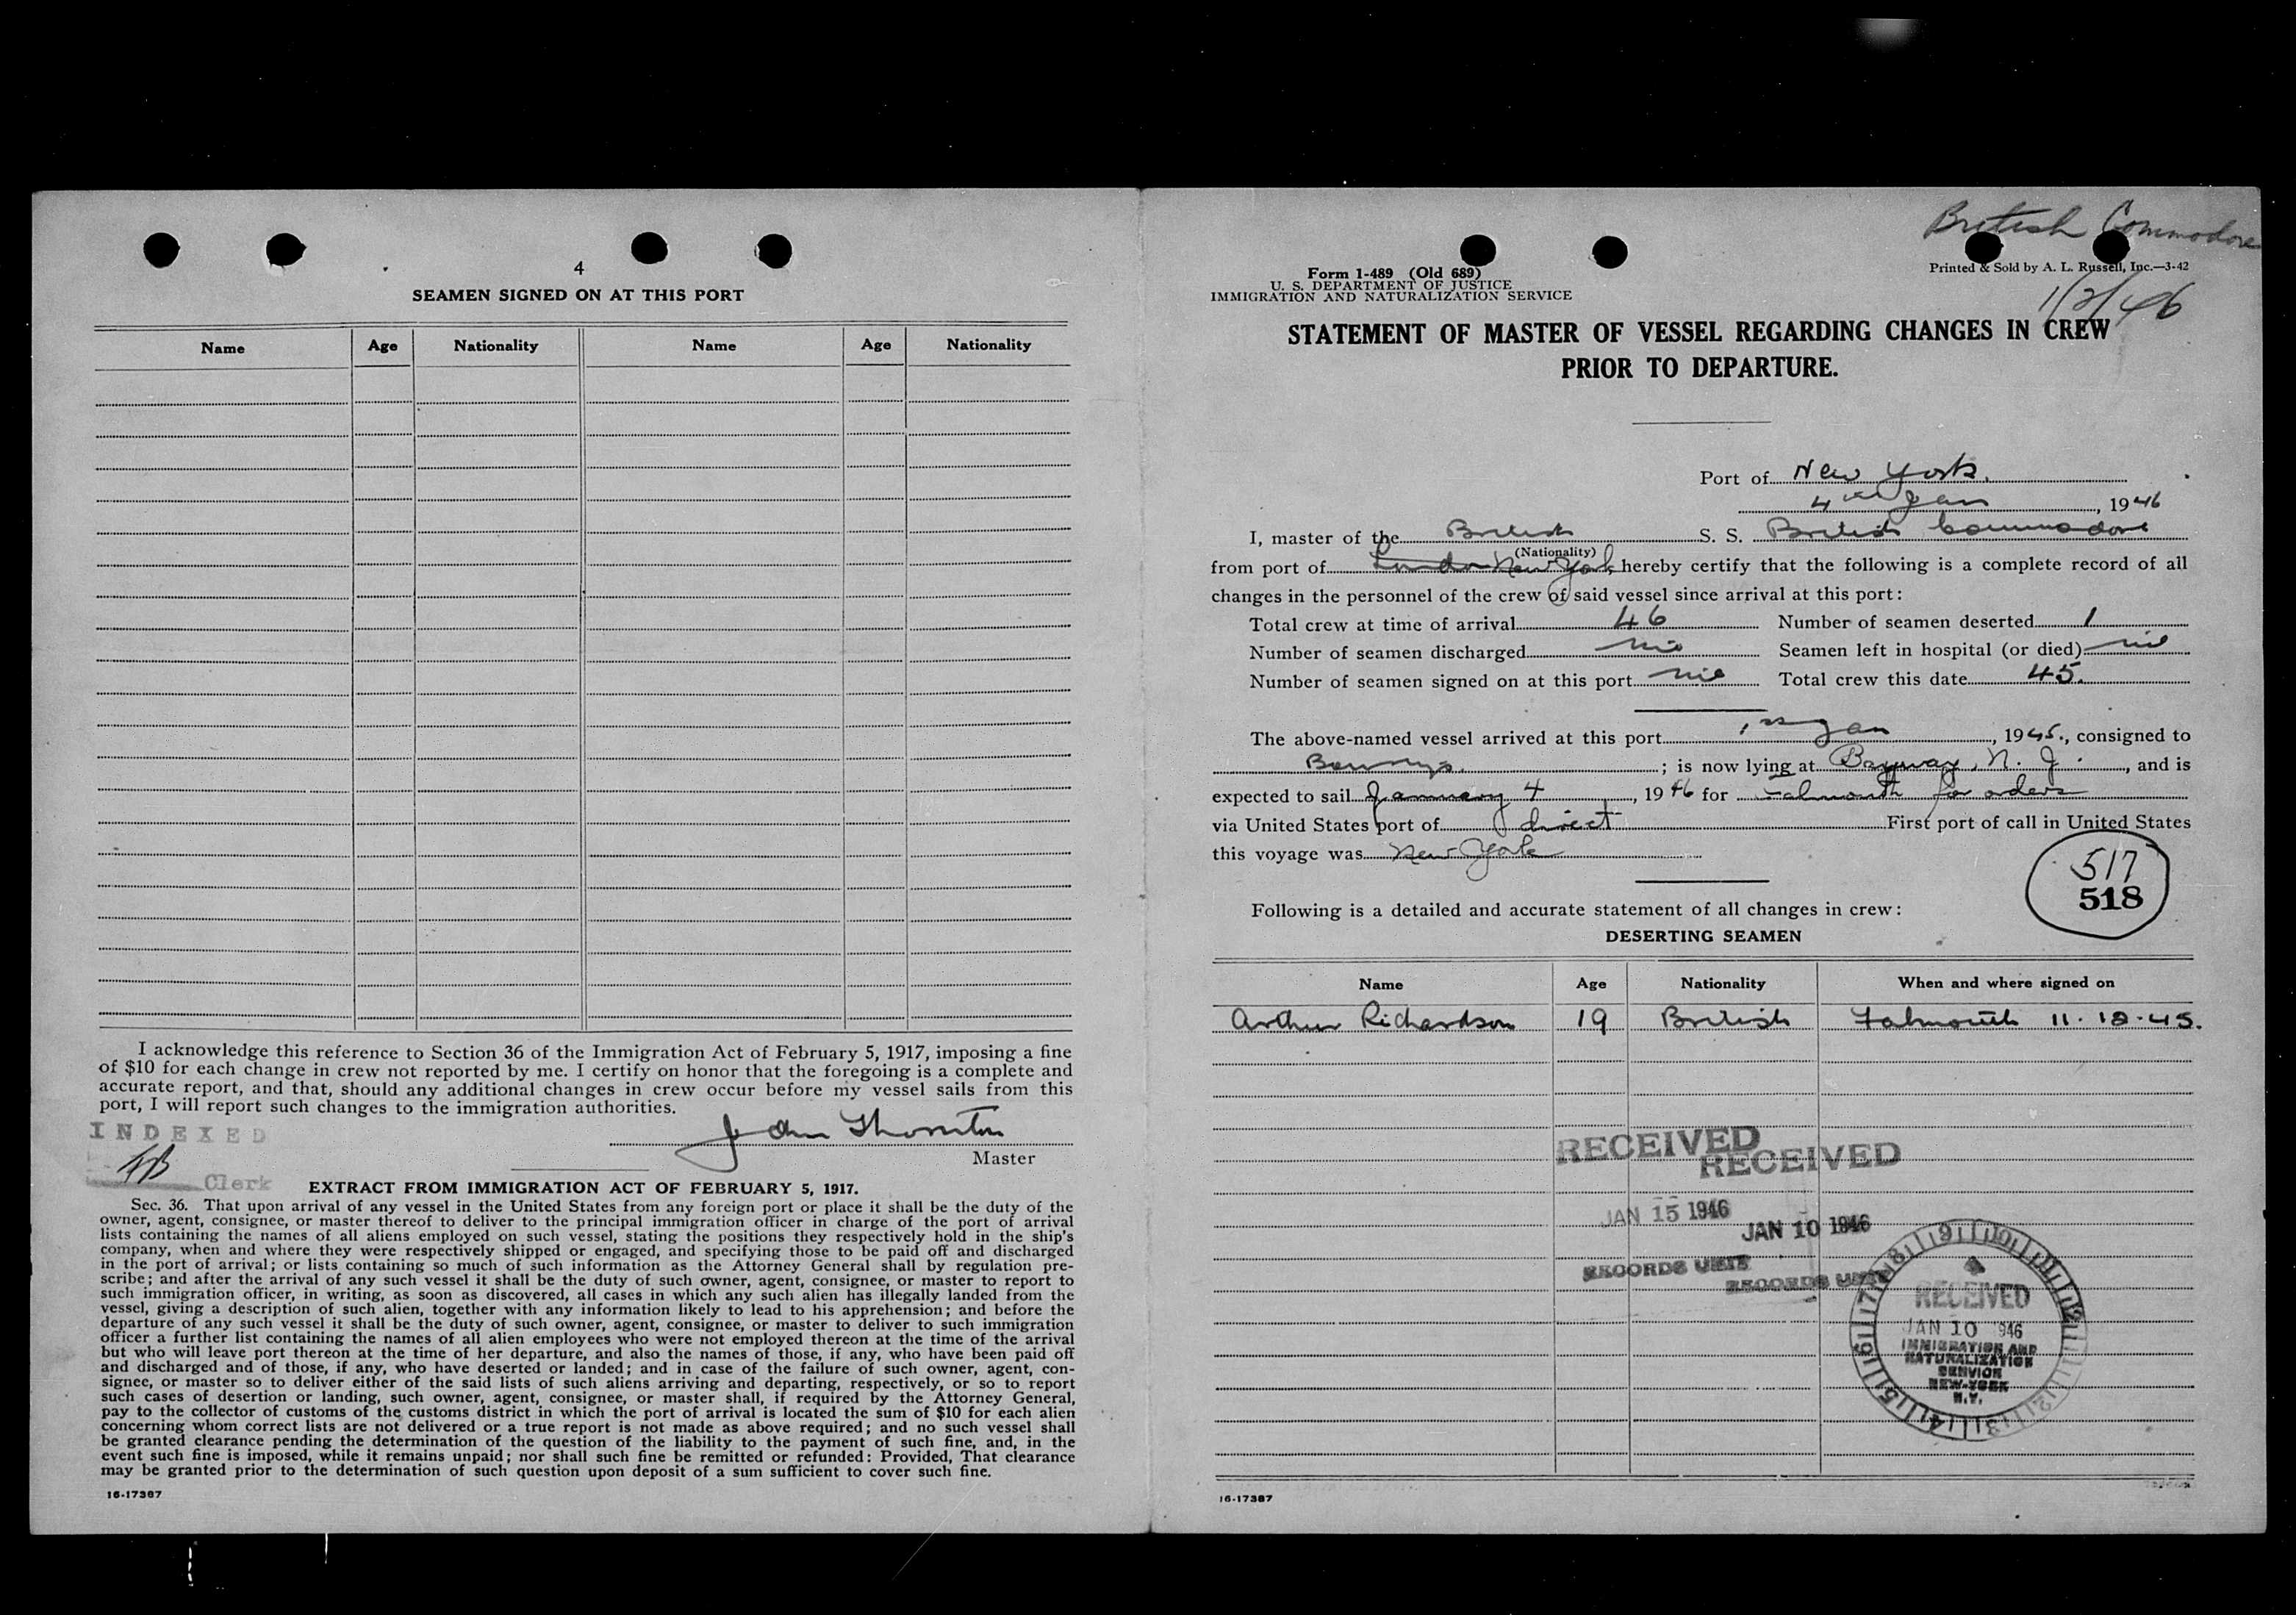 4
SEAMEN SIGNED ON AT THIS PORT
Name Age Nationality Name Age Nationality
I acknowledge this reference to Section 36 of the Immigration Act of February 5, 1917, imposing a fine
of $10 for each change in crew not reported by me. I certify on honor that the foregoing is a complete and
accurate report, and that, should any additional changes in crew occur before my vessel sails from this
port, I will report such changes to the immigration authorities.
INDEXED
John Thornton
Master
Clerk
EXTRACT FROM IMMIGRATION ACT OF FEBRUARY 5, 1917.
Sec. 36. That upon arrival of any vessel in the United States from any foreign port or place it shall be the duty of the
owner, agent, consignee, or master thereof to deliver to the principal immigration officer in charge of the port of arrival
lists containing the names of all aliens employed on such vessel, stating the positions they respectively hold in the ship's
company, when and where they were respectively shipped or engaged, and specifying those to be paid off and discharged
in the port of arrival; or lists containing so much of such information as the Attorney General shall by regulation pre-
scribe; and after the arrival of any such vessel it shall be the duty of such owner, agent, consignee, or master to report to
such immigration officer, in writing, as soon as discovered, all cases in which any such alien has illegally landed from the
vessel, giving a description of such alien, together with any information likely to lead to his apprehension; and before the
departure of any such vessel it shall be the duty of such owner, agent, consignee, or master to deliver to such immigration
officer a further list containing the names of all alien employees who were not employed thereon at the time of the arrival
but who will leave port thereon at the time of her departure, and also the names of those, if any, who have been paid off
and discharged and of those, if any, who have deserted or landed; and in case of the failure of such owner, agent, con-
signee, or master so to deliver either of the said lists of such aliens arriving and departing, respectively, or so to report
such cases of desertion or landing, such owner, agent, consignee, or master shall, if required by the Attorney General,
pay to the collector of customs of the customs district in which the port of arrival is located the sum of $10 for each alien
concerning whom correct lists are not delivered or a true report is not made as above required; and no such vessel shall
be granted clearance pending the determination of the question of the liability to the payment of such fine, and, in the
event such fine is imposed, while it remains unpaid; nor shall such fine be remitted or refunded: Provided, That clearance
may be granted prior to the determination of such question upon deposit of a sum sufficient to cover such fine.
16-17387
British Commodore
Form 1-489 (Old 689)
U. S. DEPARTMENT OF JUSTICE
IMMIGRATION AND NATURALIZATION SERVICE
Printed & Sold by A. L. Russell, Inc.—3-42
1/2/46
STATEMENT OF MASTER OF VESSEL REGARDING CHANGES IN CREW
PRIOR TO DEPARTURE.
Port of New York.
4th Jan, 1946
I, master of the British S. S. British Commodore
(Nationality)
from port of London New York hereby certify that the following is a complete record of all
changes in the personnel of the crew of said vessel since arrival at this port:
Total crew at time of arrival 46 Number of seamen deserted 1
Number of seamen discharged nil Seamen left in hospital (or died) nil
Number of seamen signed on at this port nil Total crew this date 45.
The above-named vessel arrived at this port 1st Jan, 1945., consigned to
; is now lying at Bayway, N. J., and is
expected to sail January 4, 1946 for Falmouth for orders
via United States port of direct First port of call in United States
this voyage was New York
517
518
Following is a detailed and accurate statement of all changes in crew:
DESERTING SEAMEN
Name Age Nationality When and where signed on
Arthur Richardson 19 British Falmouth 11.12.45.
RECEIVED
RECEIVED
JAN 15 1946
JAN 10 1946
RECORDS UNIT
RECORDS UNIT
RECEIVED
JAN 10 946
IMMIGRATION AND
NATURALIZATION
SERVICE
NEW-YORK
N.Y.
16-17387